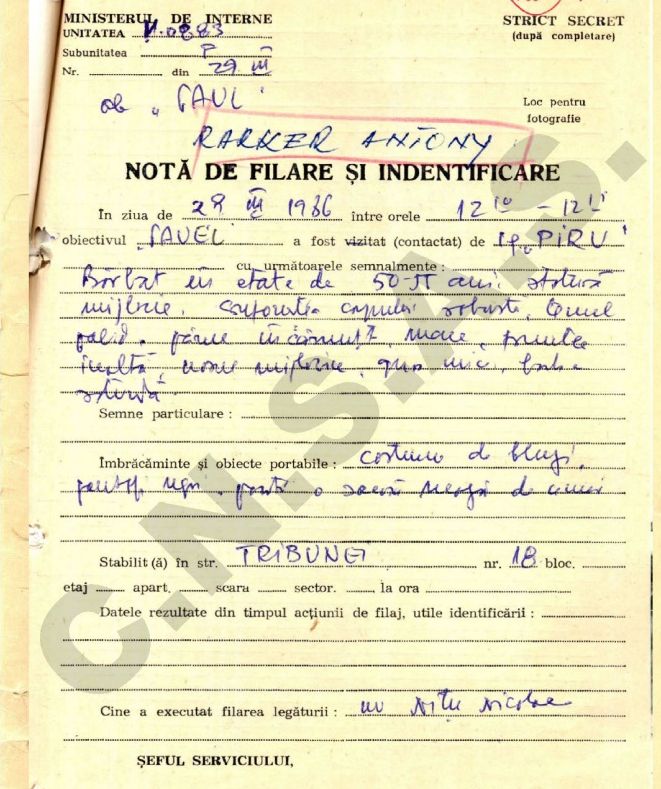 MINISTERUL DE INTERNE
UNITATEA U.0883
Subunitatea P II
Nr. din 29 III
STRICT SECRET
(după completare)
ob „PAUL"
Loc pentru
fotografie
RARKER ANTONY
NOTĂ DE FILARE ȘI INDENTIFICARE
În ziua de 28 III 1986 între orele 12 10 - 12 11
obiectivul „PAVEL" a fost vizitat (contactat) de „PIRU"
cu următoarele semnalmente :
Bărbat în etate de 50-55 ani, statură
mijlocie, corpului robustă, tenul
palid, păr încărunțit, mare, fruntea
înaltă, mijlocie, gura mică,
Semne particulare :
Îmbrăcăminte și obiecte portabile : costum de blugi,
pantofi negri, poartă o neagră de umăr
Stabilit (ă) în str. TRIBUNEI nr. 18 bloc.
etaj apart. scara sector. la ora
Datele rezultate din timpul acțiunii de filaj, utile identificării :
Cine a executat filarea legăturii : Nițu Nicolae
ȘEFUL SERVICIULUI,
C.N.S.A.S.